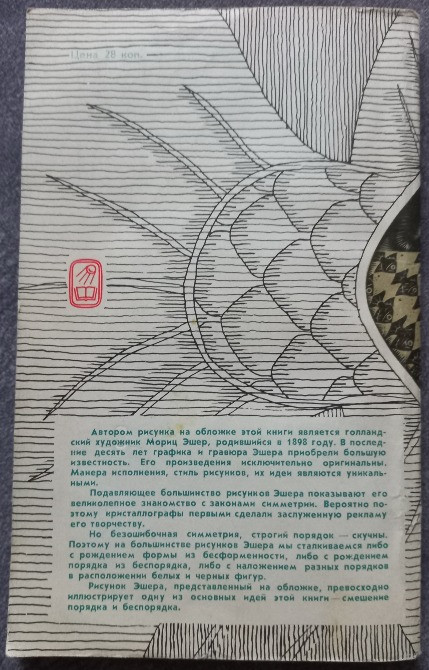 Цена 28 коп.
Автором рисунка на обложке этой книги является голланд-
ский художник Мориц Эшер, родившийся в 1898 году. В послед-
ние десять лет графика и гравюра Эшера приобрели большую
известность. Его произведения исключительно оригинальны.
Манера исполнения, стиль рисунков, их идеи являются уникаль-
ными.
Подавляющее большинство рисунков Эшера показывают его
великолепное знакомство с законами симметрии. Вероятно по-
этому кристаллографы первыми сделали заслуженную рекламу
его творчеству.
Но безошибочная симметрия, строгий порядок — скучны.
Поэтому на большинстве рисунков Эшера мы сталкиваемся либо
с рождением формы из бесформенности, либо с рождением
порядка из беспорядка, либо с наложением разных порядков
в расположении белых и черных фигур.
Рисунок Эшера, представленный на обложке, превосходно
иллюстрирует одну из основных идей этой книги — смешение
порядка и беспорядка.